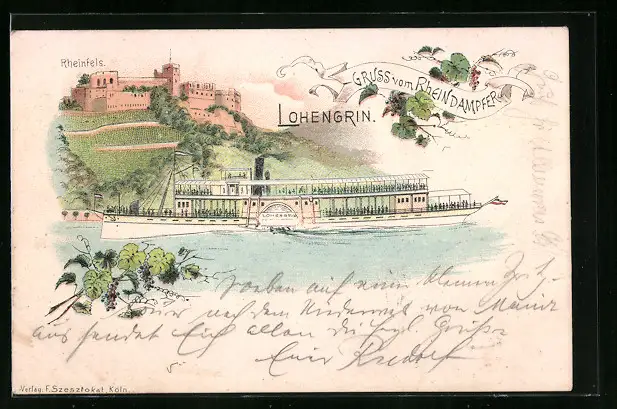 Rheinfels.
GRUSS vom RHEINDAMPFER
LOHENGRIN.
LOHENGRIN
Soeben auf einer kleinen
nach dem Niederwald von Mainz
aus sendet Euch allen die herzl. Grüsse
Euer Rudolf
Verlag. F. Szesztokat, Köln.